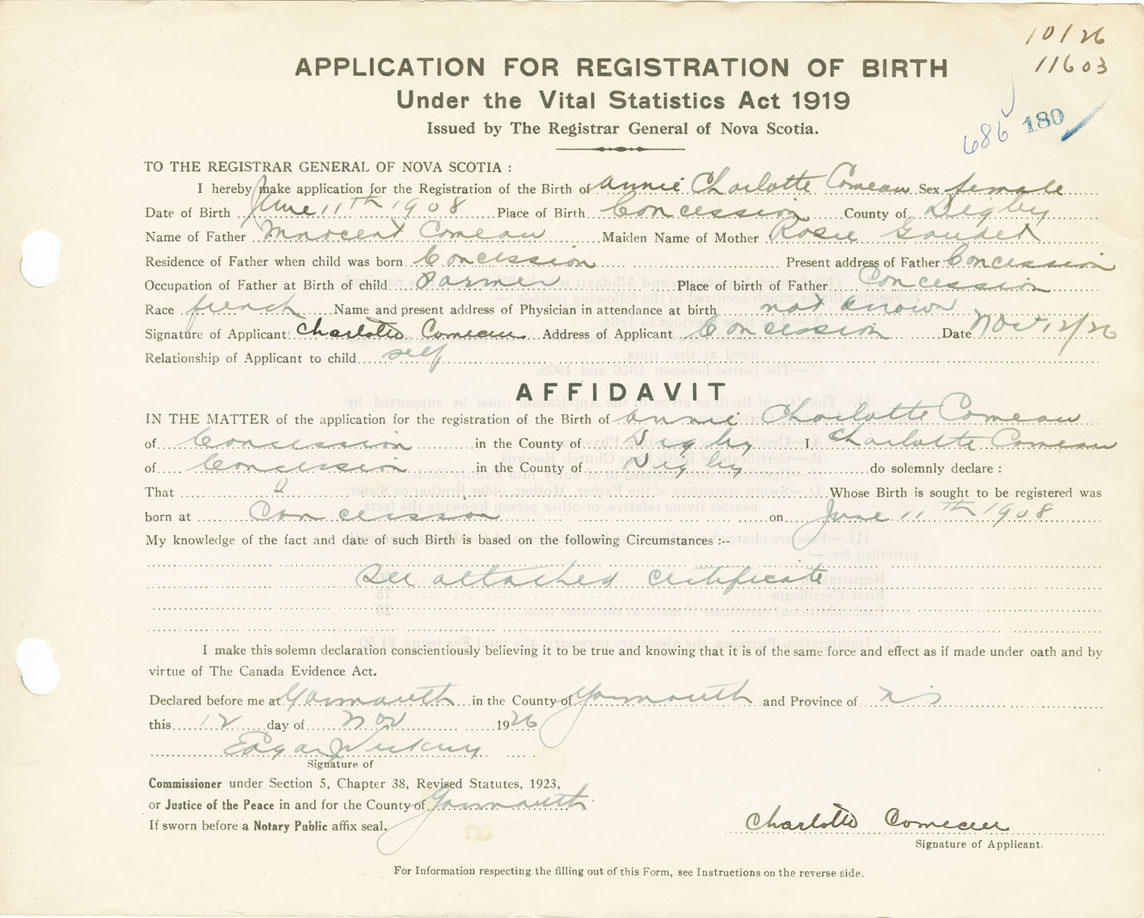 10/26
11603
686 180
APPLICATION FOR REGISTRATION OF BIRTH
Under the Vital Statistics Act 1919
Issued by The Registrar General of Nova Scotia.
TO THE REGISTRAR GENERAL OF NOVA SCOTIA :
I hereby make application for the Registration of the Birth of Annie Charlotte Comeau Sex female
Date of Birth June 11th 1908 Place of Birth Concession County of Digby
Name of Father Innocent Comeau Maiden Name of Mother Rosie Gaudet
Residence of Father when child was born Concession Present address of Father Concession
Occupation of Father at Birth of child Farmer Place of birth of Father Concession
Race french Name and present address of Physician in attendance at birth not known
Signature of Applicant Charlotte Comeau Address of Applicant Concession Date Nov 12/26
Relationship of Applicant to child self
AFFIDAVIT
IN THE MATTER of the application for the registration of the Birth of Annie Charlotte Comeau
of Concession in the County of Digby I, Charlotte Comeau
of Concession in the County of Digby do solemnly declare :
That I Whose Birth is sought to be registered was
born at Concession on June 11th 1908
My knowledge of the fact and date of such Birth is based on the following Circumstances :--
See attached certificate
I make this solemn declaration conscientiously believing it to be true and knowing that it is of the same force and effect as if made under oath and by
virtue of The Canada Evidence Act.
Declared before me at Yarmouth in the County of Yarmouth and Province of NS
this 12 day of Nov 1926
Edgar
Signature of
Commissioner under Section 5, Chapter 38, Revised Statutes, 1923,
or Justice of the Peace in and for the County of Yarmouth
If sworn before a Notary Public affix seal.
Charlotte Comeau
Signature of Applicant.
For Information respecting the filling out of this Form, see Instructions on the reverse side.